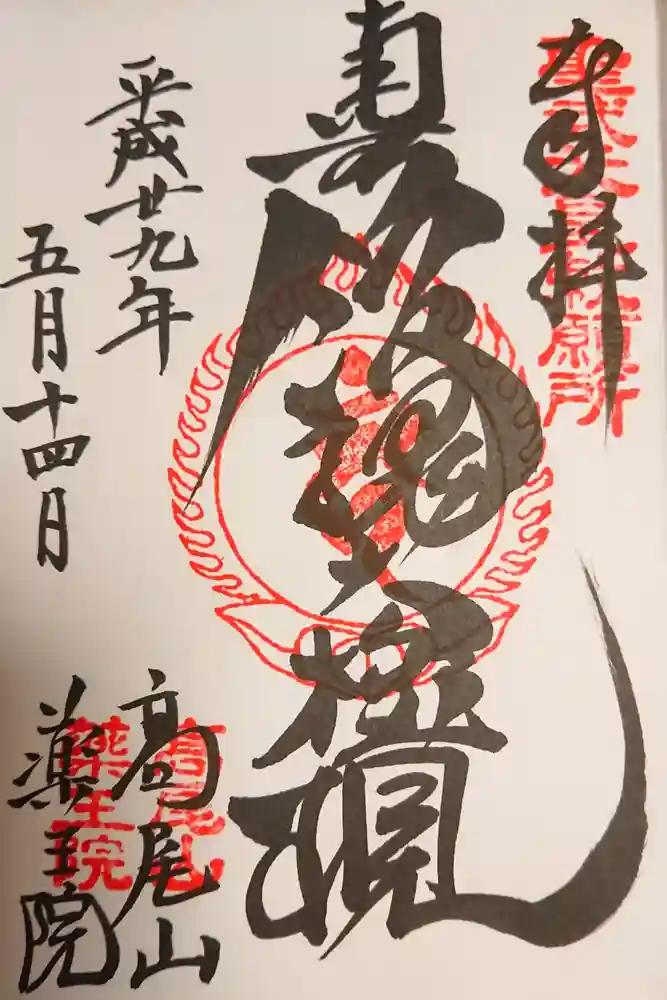 奉拝
聖武天皇勅願所
飯縄権現
平成廿九年
五月十四日
高尾山
薬王院
高尾山
薬王院